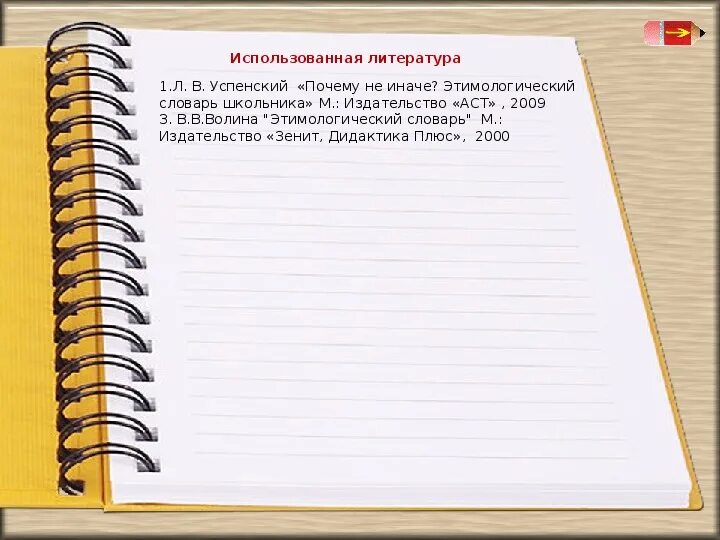 Использованная литература
1.Л. В. Успенский «Почему не иначе? Этимологический
словарь школьника» М.: Издательство «АСТ» , 2009
3. В.В.Волина "Этимологический словарь" М.:
Издательство «Зенит, Дидактика Плюс», 2000